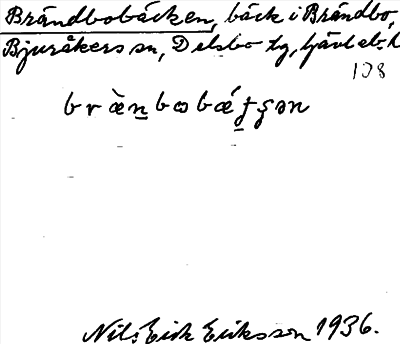 Brändbobäcken, bäck i Brändbo,
Bjuråkers sn, Delsbo tg, Gävleb. l
108
Nils Erik Eriksson 1936.